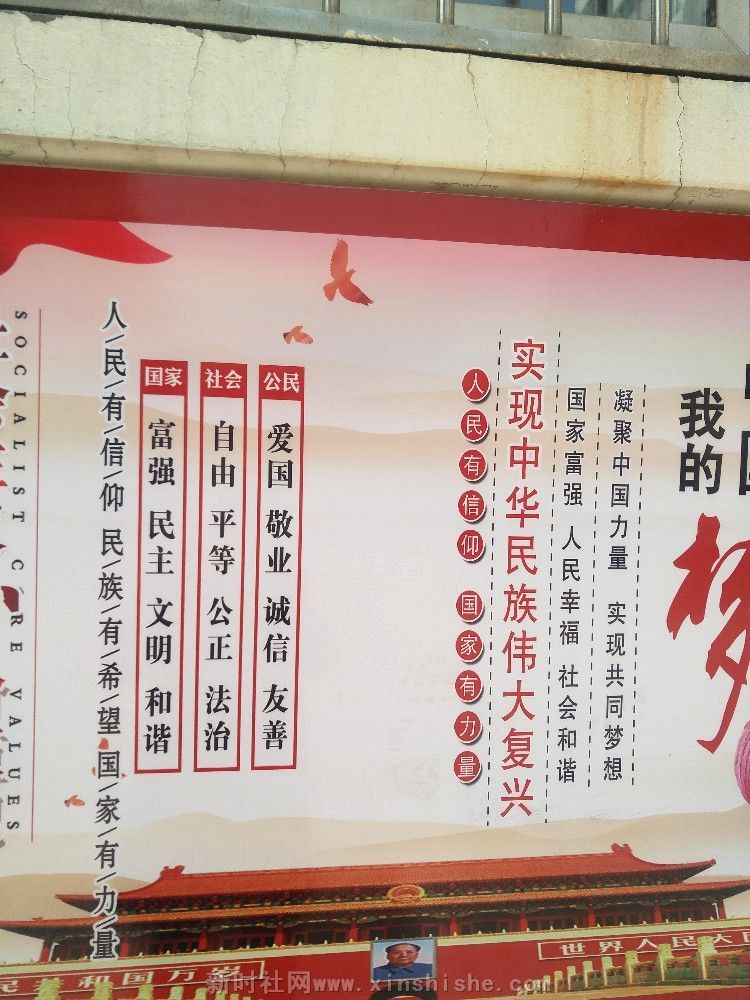 我的
梦
凝聚中国力量 实现共同梦想
国家富强 人民幸福 社会和谐
实现中华民族伟大复兴
人民有信仰 国家有力量
公民
爱国 敬业 诚信 友善
社会
自由 平等 公正 法治
国家
富强 民主 文明 和谐
人/民/有/信/仰 民/族/有/希/望 国/家/有/力/量
SOCIALIST CORE VALUES
世界人民大
和国万
新时社网www.xinshishe.com